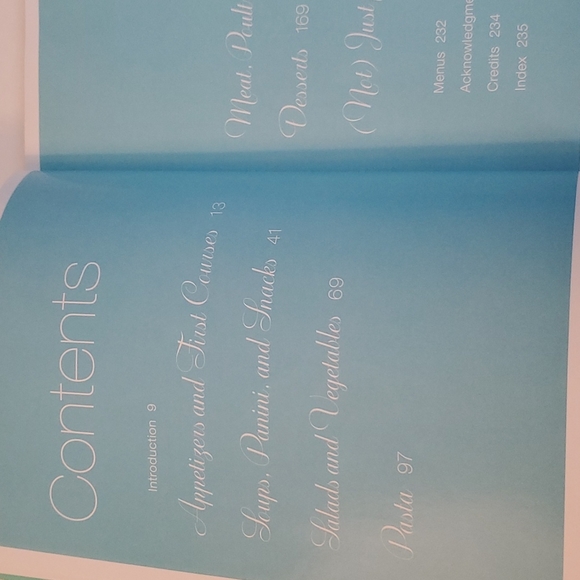 Contents
Introduction 9
Appetizers and First Courses 13
Soups, Panini, and Snacks 41
Salads and Vegetables 69
Pasta 97
Meat,
Desserts 169
(Not) Just
Menus 232
Credits 234
Index 235